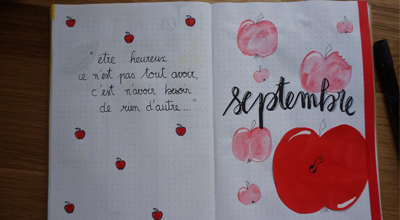 "être heureux
ce n'est pas tout avoir,
c'est n'avoir besoin
de rien d'autre..."
septembre